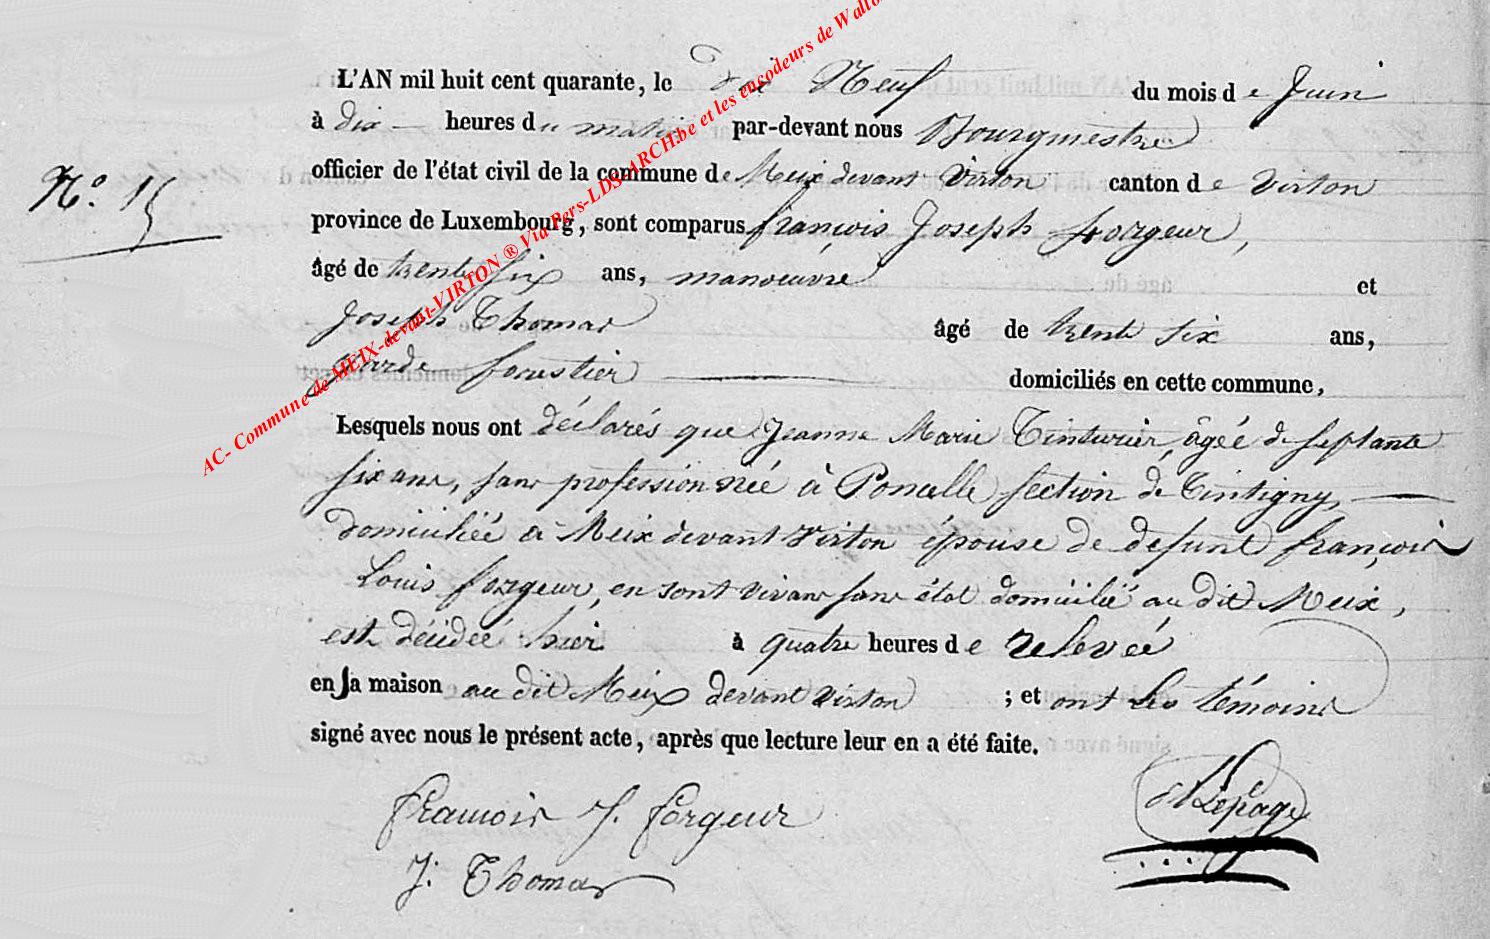 L'AN mil huit cent quarante, le dix Neuf du mois de Juin
à dix heures du matin par-devant nous Bourgmestre
officier de l'état civil de la commune de Meix devant Virton canton de Virton
N.° 15
province de Luxembourg, sont comparus françois Joseph forgeur,
âgé de trente six ans, manoeuvre et
Joseph Thomas âgé de trente six ans,
garde forestier domiciliés en cette commune,
Lesquels nous ont déclarés que Jeanne Marie Tinturier, âgéé de septante
six ans, sans profession néé à Poncelle section de Tintigny,
domiciliéé à Meix devant Virton épouse de defunt françois
Louis forgeur, en sont vivans sans état domicilié au dit Meix,
est décédéé hier à quatre heures de relevéé
en sa maison au dit Meix devant Virton ; et ont les témoins
signé avec nous le présent acte, après que lecture leur en a été faite.
francois J. forgeur
Lepage
J. Thomas
AC- Commune de MEIX-devant-VIRTON ® Via Pers-LDS-ARCH.be et les encodeurs de Wallo